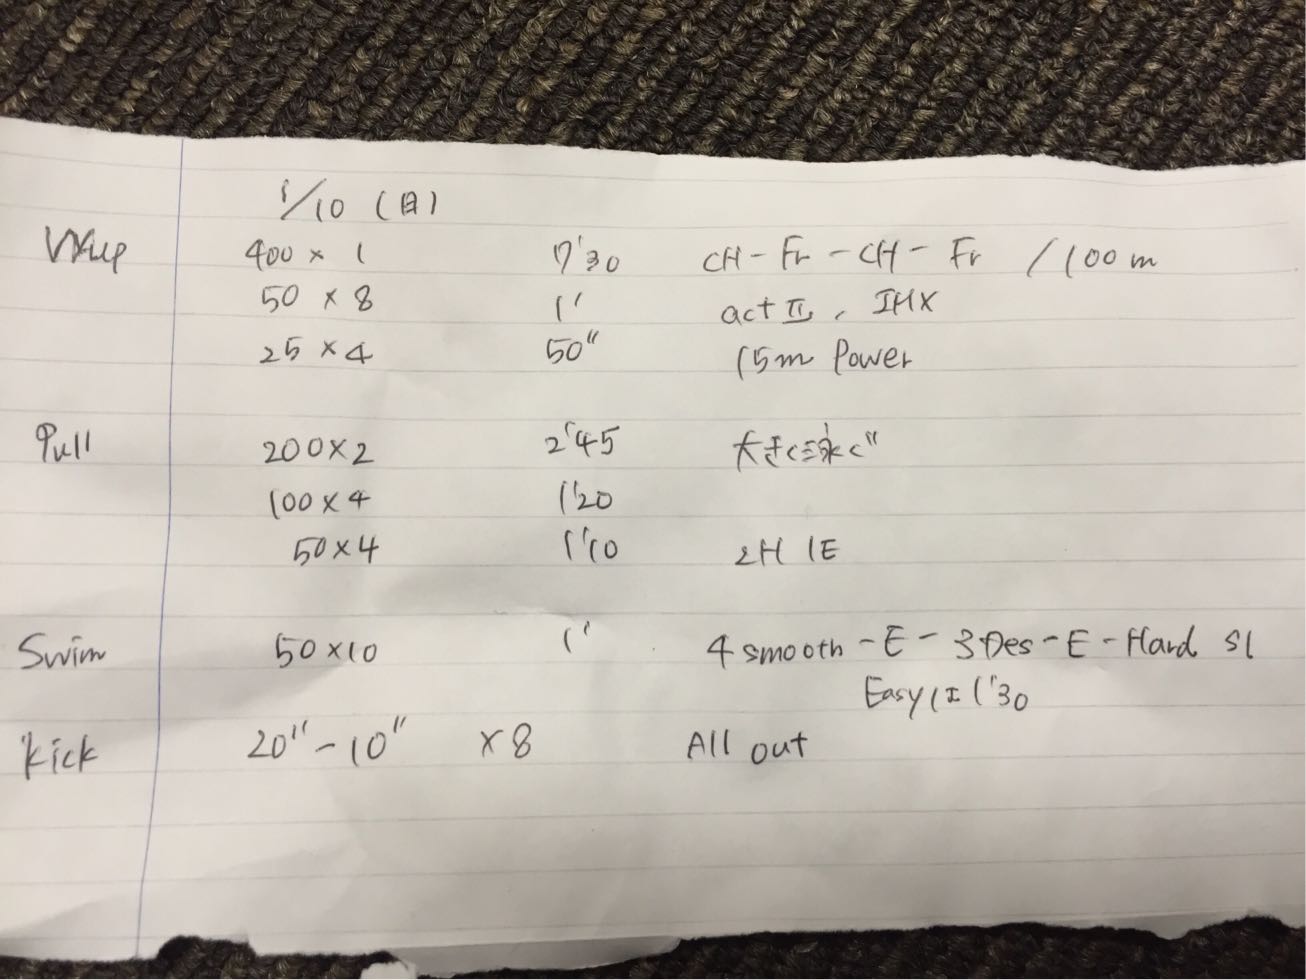 1/10 (日)
W-up 400 × 1 7'30 CH - Fr - CH - Fr /100m
50 × 8 1' act II, IMX
25 × 4 50" 15m Power
Pull 200 × 2 2'45 大きく泳ぐ
100 × 4 1'20
50 × 4 1'10 2H 1E
Swim 50 × 10 1' 4 smooth - E - 3 Des - E - Hard S1
Easyは 1'30
Kick 20" - 10" × 8 All out